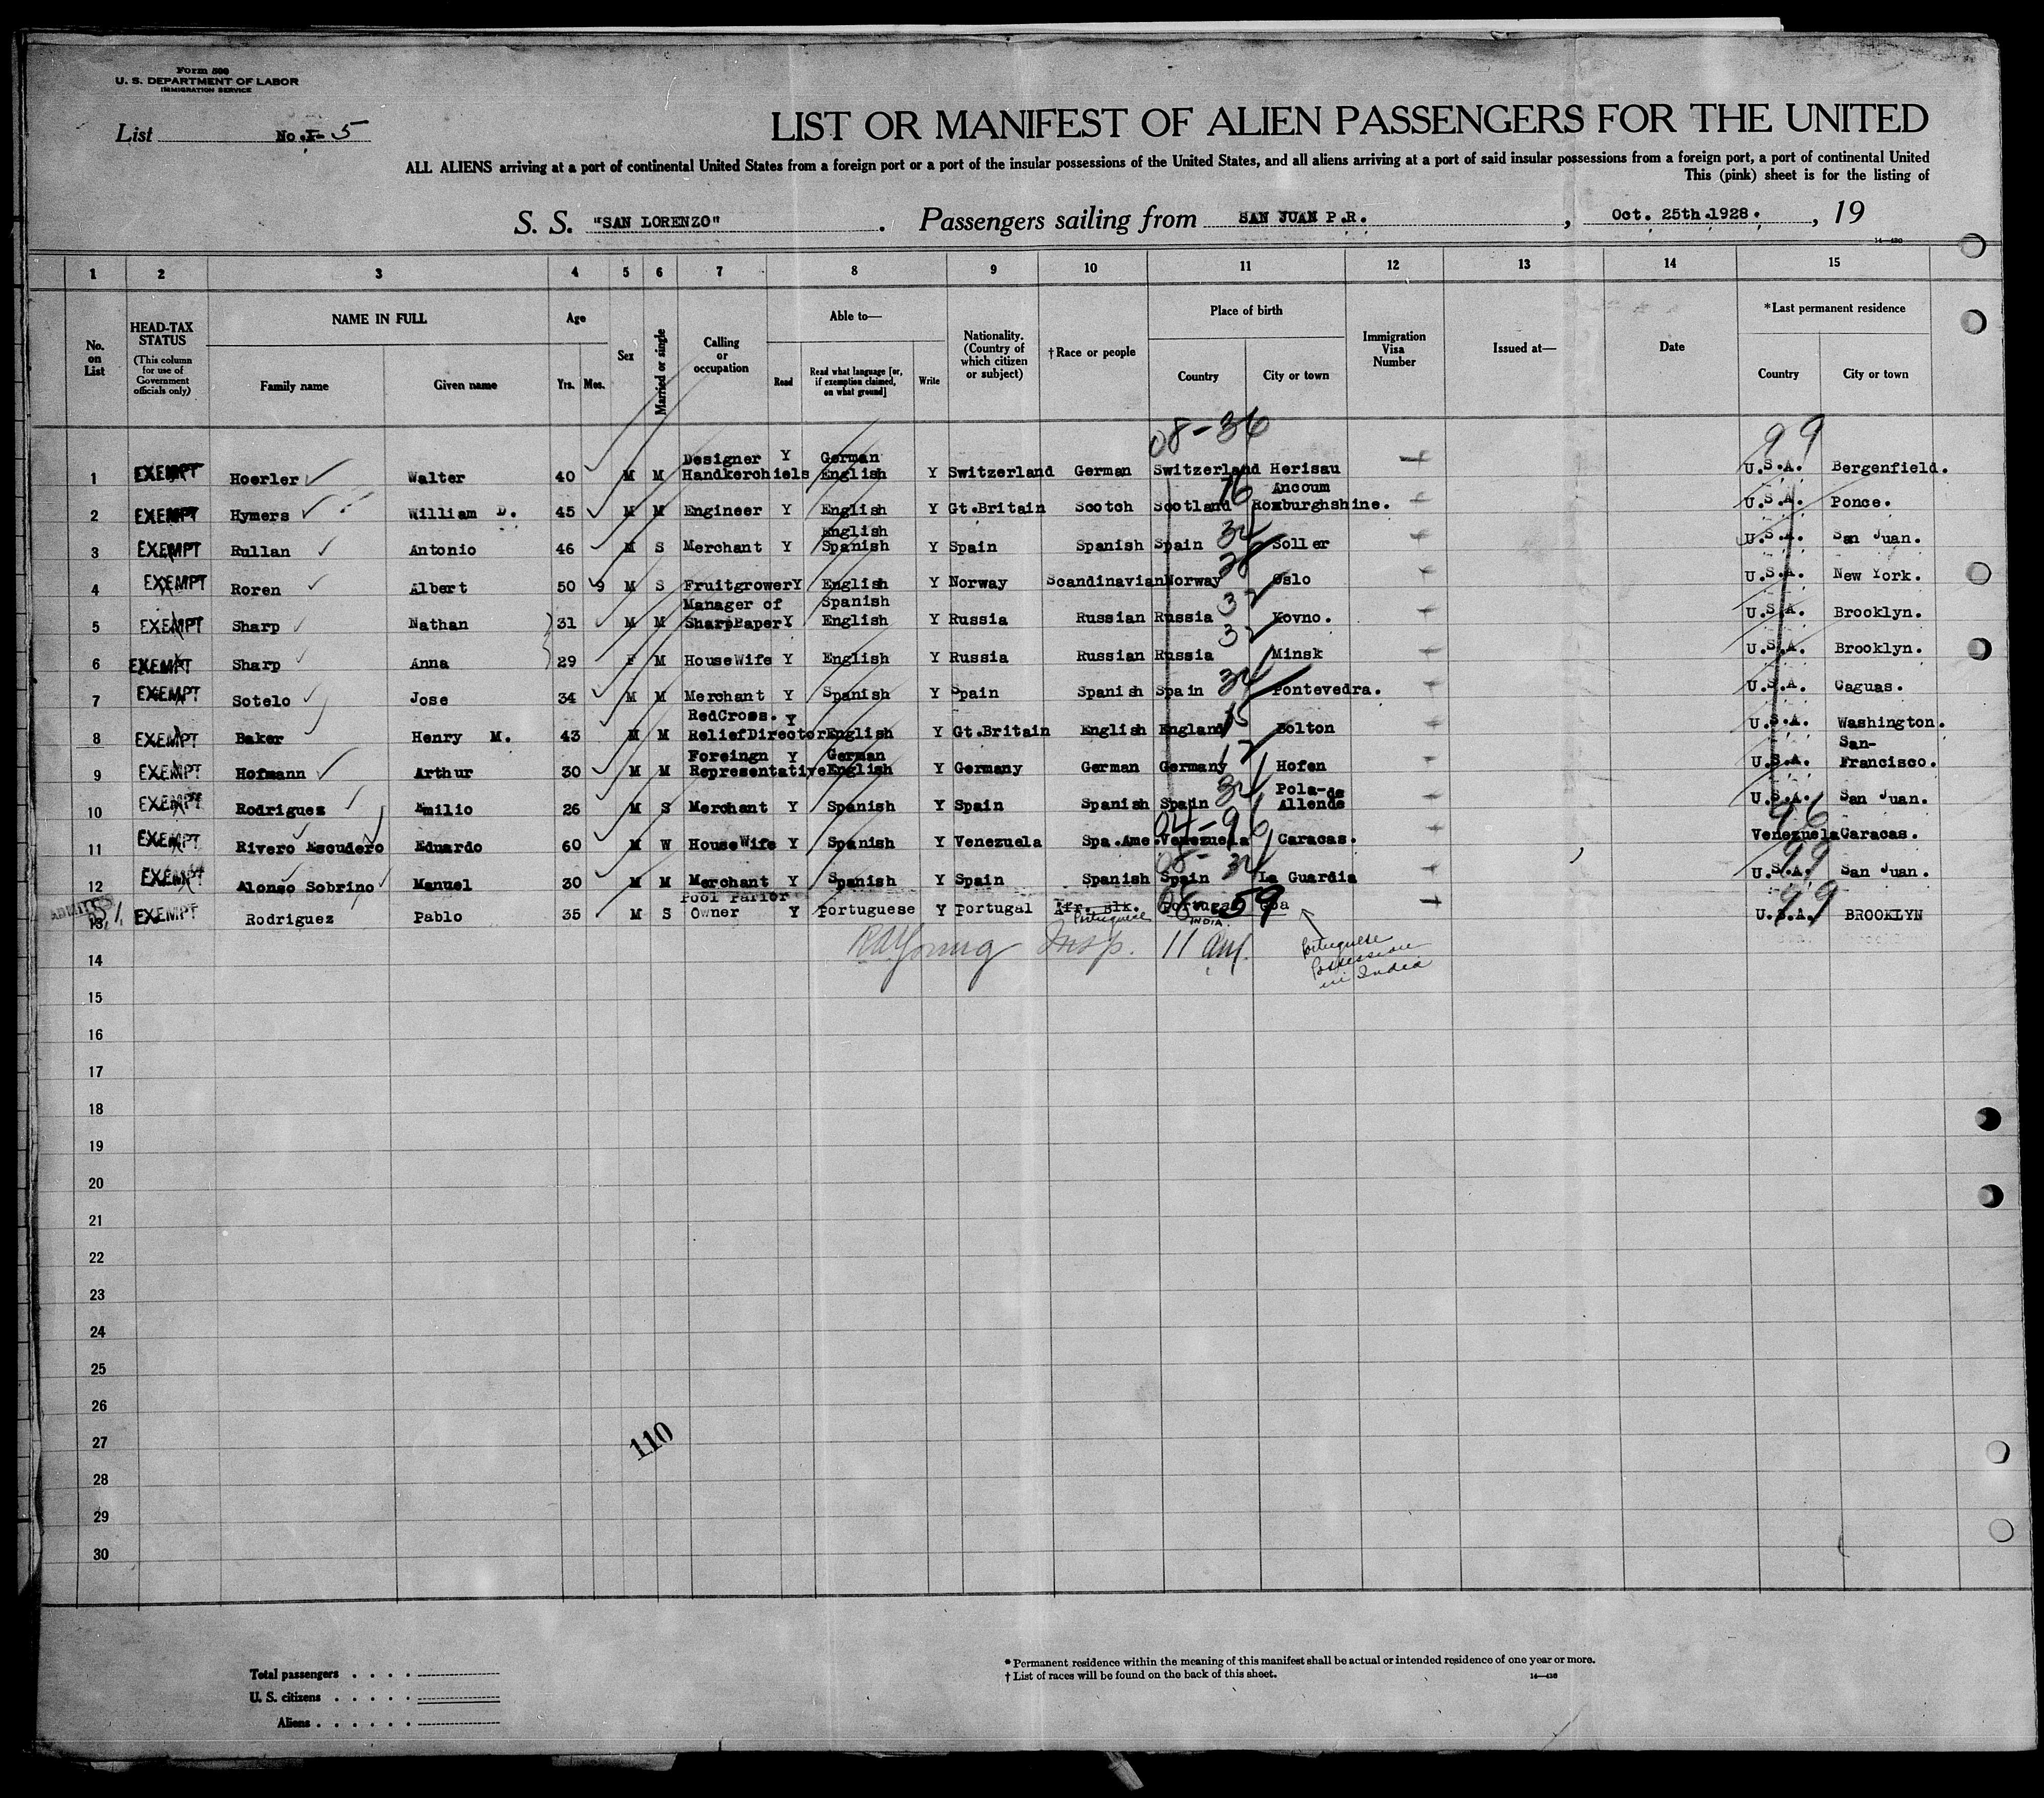 Form 500
U. S. DEPARTMENT OF LABOR
IMMIGRATION SERVICE
List No. I- 5
LIST OR MANIFEST OF ALIEN PASSENGERS FOR THE UNITED
ALL ALIENS arriving at a port of continental United States from a foreign port or a port of the insular possessions of the United States, and all aliens arriving at a port of said insular possessions from a foreign port, a port of continental United
This (pink) sheet is for the listing of
S. S. "SAN LORENZO" . Passengers sailing from SAN JUAN P.R. , Oct. 25th.1928. , 19
14—430
1 2 3 4 5 6 7 8 9 10 11 12 13 14 15
No. on List
HEAD-TAX STATUS
(This column for use of Government officials only)
NAME IN FULL
Family name Given name
Age
Yrs. Mos.
Sex
Married or single
Calling or occupation
Able to—
Read
Read what language [or, if exemption claimed, on what ground]
Write
Nationality. (Country of which citizen or subject)
†Race or people
Place of birth
Country City or town
Immigration Visa Number
Issued at—
Date
*Last permanent residence
Country City or town
08-36 99
1 EXEMPT Hoerler Walter 40 M M Designer Handkerchiels Y German English Y Switzerland German Switzerland Herisau U.S.A. Bergenfield.
2 EXEMPT Hymers William D. 45 M M Engineer Y English Y Gt.Britain Scotch Scotland 16 Ancoum Roxburghshine. U.S.A. Ponce.
3 EXEMPT Rullan Antonio 46 M S Merchant Y English Spanish Y Spain Spanish Spain Soller U.S.A. San Juan.
4 EXEMPT Roren Albert 50 9 M S Fruitgrower Y English Y Norway Scandinavian Norway 28 Oslo U.S.A. New York.
5 EXEMPT Sharp Nathan 31 M M Manager of SharpPaper Y Spanish English Y Russia Russian Russia 32 Kovno. U.S.A. Brooklyn.
6 EXEMPT Sharp Anna 29 F M HouseWife Y English Y Russia Russian Russia 32 Minsk U.S.A. Brooklyn.
7 EXEMPT Sotelo Jose 34 M M Merchant Y Spanish Y Spain Spanish Spain Pontevedra. U.S.A. Caguas.
8 EXEMPT Baker Henry M. 43 M M RedCross. ReliefDirector Y English Y Gt.Britain English England 15 Bolton U.S.A. Washington.
9 EXEMPT Hofmann Arthur 30 M M Foreingn Representative Y German English Y Germany German Germany 12 Hofen U.S.A. San-Francisco.
10 EXEMPT Rodriguez Emilio 26 M S Merchant Y Spanish Y Spain Spanish Spain Pola-de Allende U.S.A. San Juan.
11 EXEMPT Rivero Escudero Eduardo 60 M W HouseWife Y Spanish Y Venezuela Spa.Ame. Venezuela 04-96 Caracas. 96 Venezuela Caracas.
12 EXEMPT Alonso Sobrino Manuel 30 M M Merchant Y Spanish Y Spain Spanish Spain La Guardia 99 U.S.A. San Juan.
13 ADMITTED EXEMPT Rodriguez Pablo 35 M S Pool Parlor Owner Y Portuguese Y Portugal Afr. Blk. Portuguese Portugal INDIA 08 59 Goa 99 U.S.A. BROOKLYN
RA Young Insp. 11 am.
Portuguese
Possession
in India
14
15
16
17
18
19
20
21
22
23
24
25
26
27
110
28
29
30
Total passengers . . . .
U. S. citizens . . . . .
Aliens . . . . . .
* Permanent residence within the meaning of this manifest shall be actual or intended residence of one year or more.
† List of races will be found on the back of this sheet. 14—430